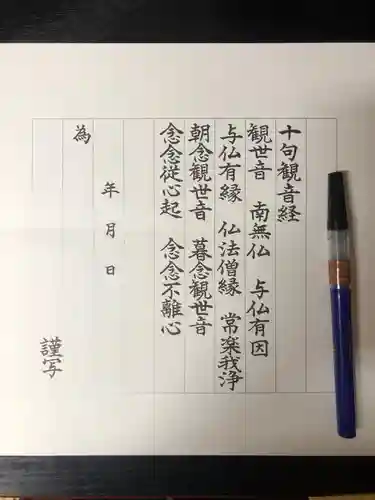 十句観音経
観世音 南無仏 与仏有因
与仏有縁 仏法僧縁 常楽我浄
朝念観世音 暮念観世音
念念従心起 念念不離心
年 月 日
為
謹写